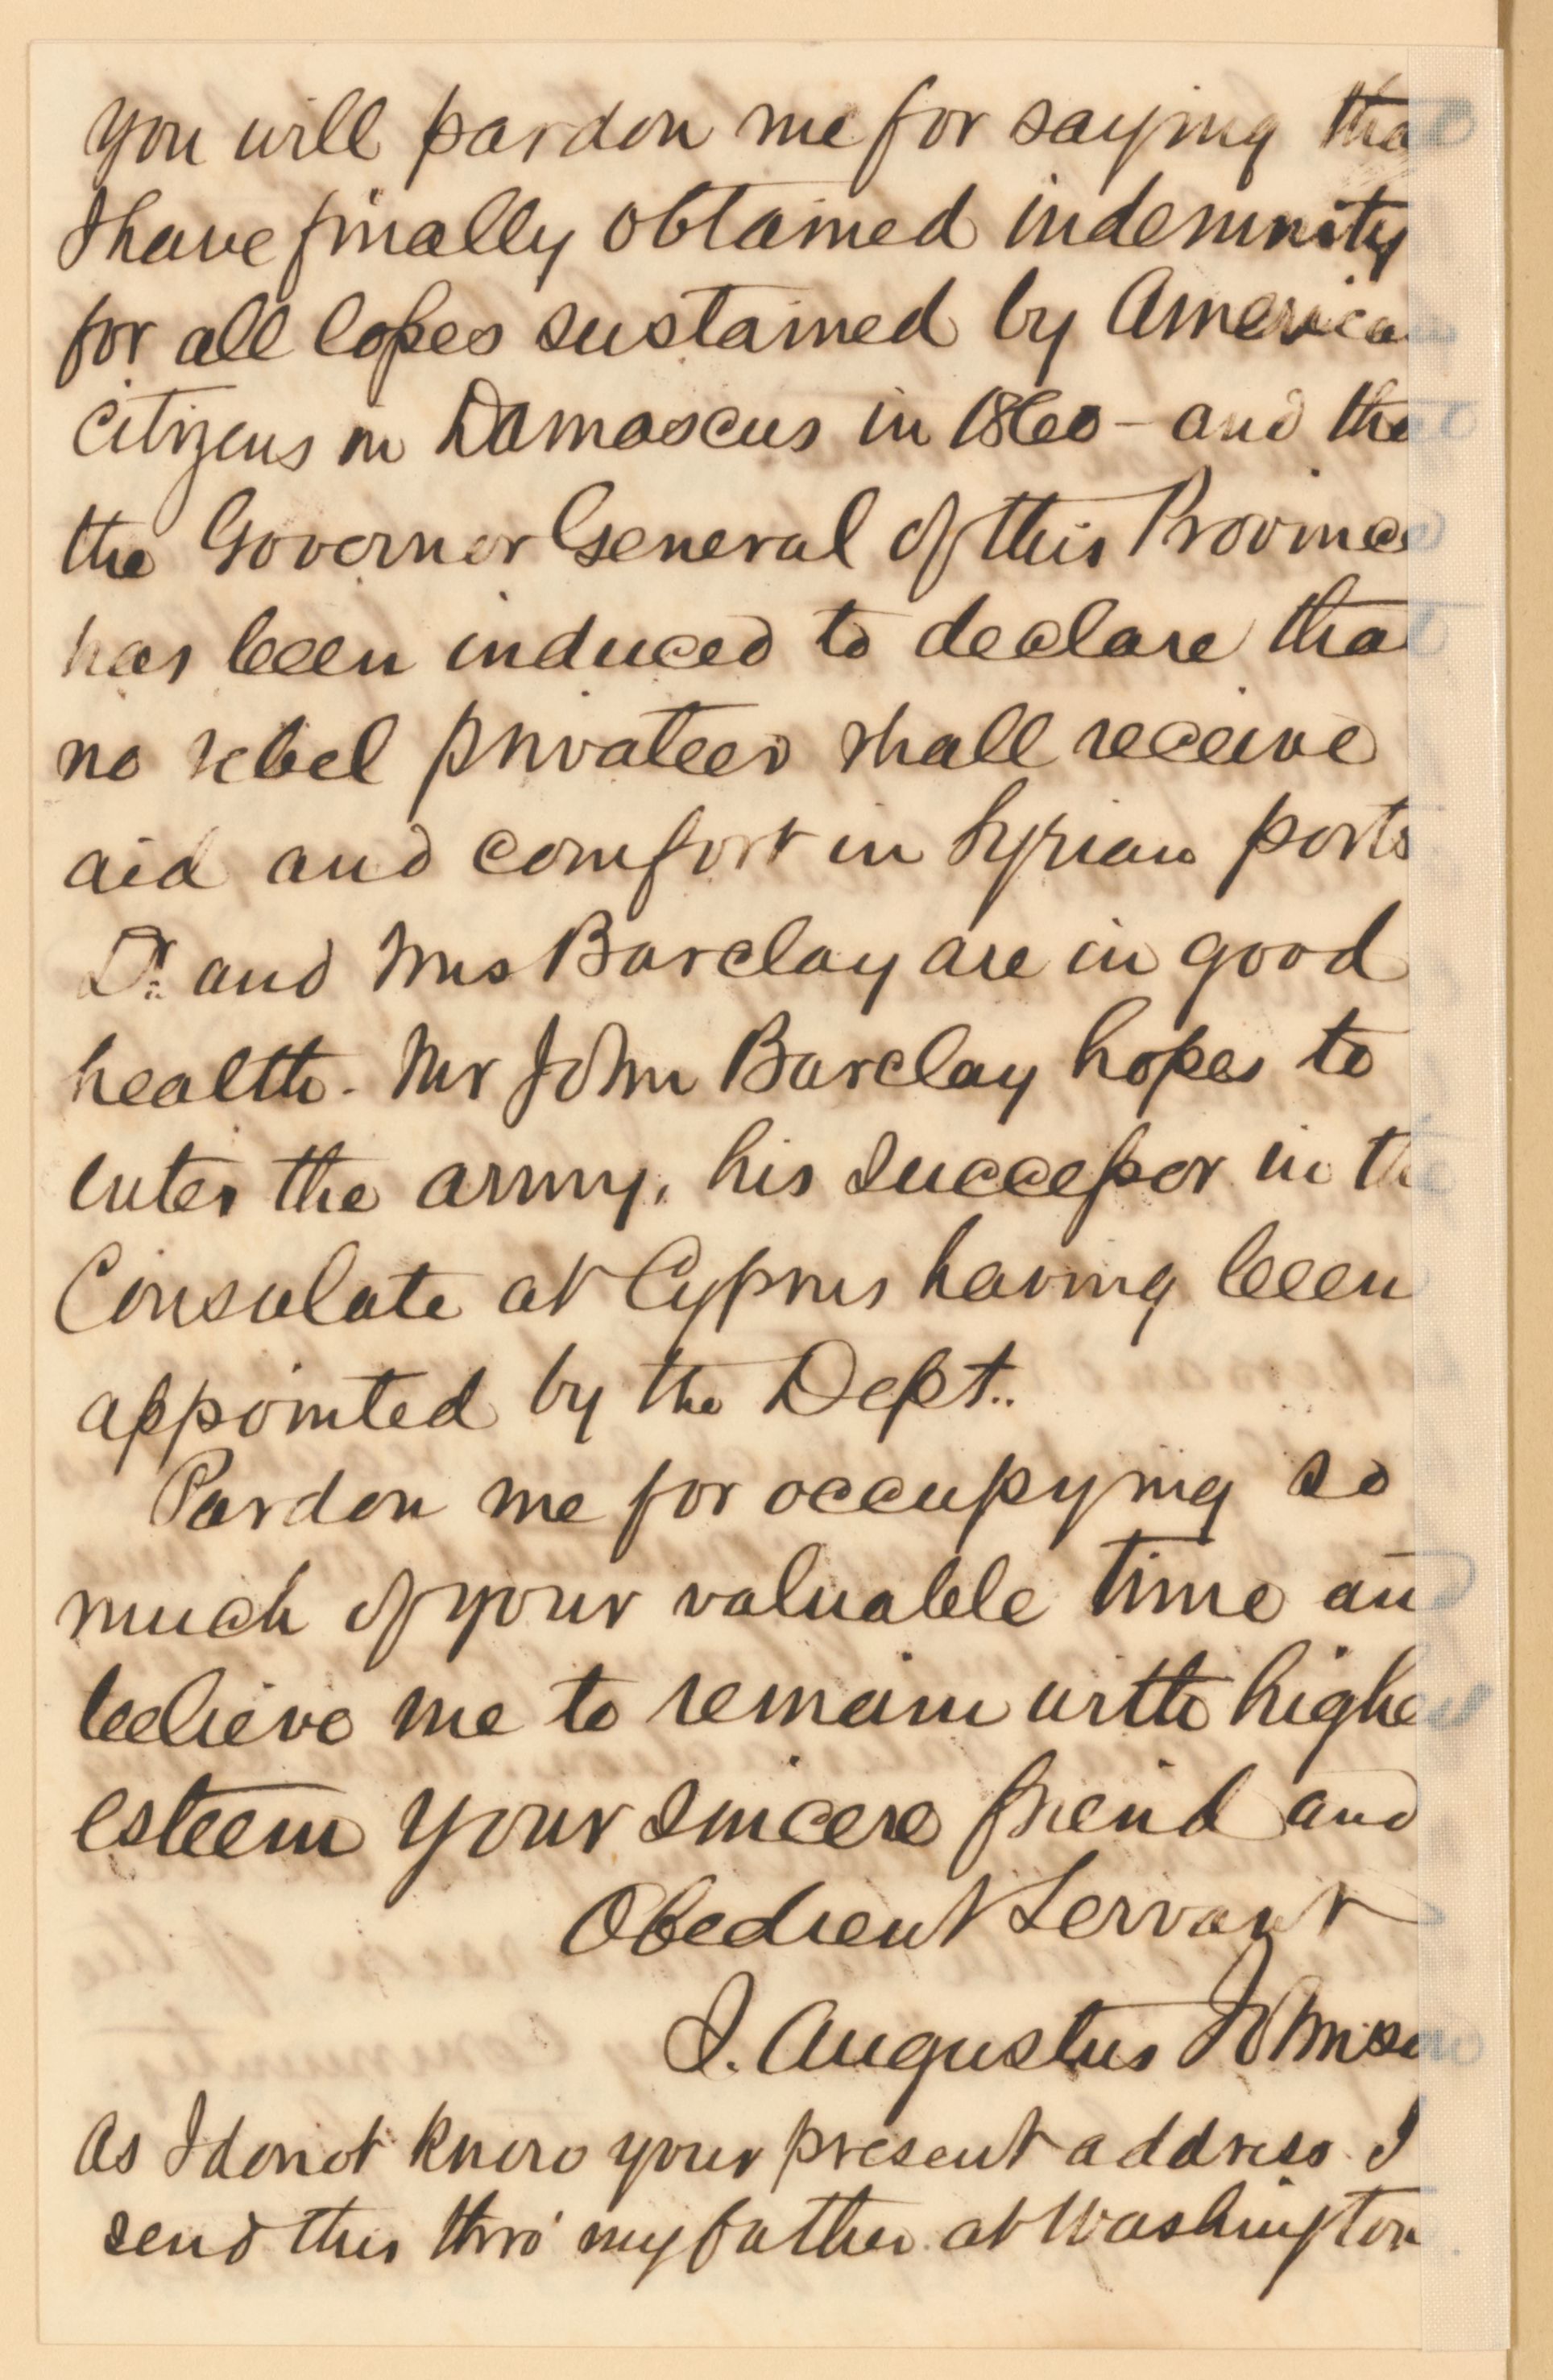 you will pardon me for saying that
I have finally obtained indemnity
for all losses sustained by American
citizens in Damascus in 1860 - and that
the Governor General of this Province
has been induced to declare that
no rebel privateer shall receive
aid and comfort in Syrian ports
Dr. and Mrs Barclay are in good
health. Mr John Barclay hopes to
enter the army, his successor in the
Consulate at Cyprus having been
appointed by the Dept..
Pardon me for occupying so
much of your valuable time and
believe me to remain with highest
esteem your sincere friend and
Obedient Servant
J. Augustus Johnson
As I do not know your present address I
send this thro' my father at Washington